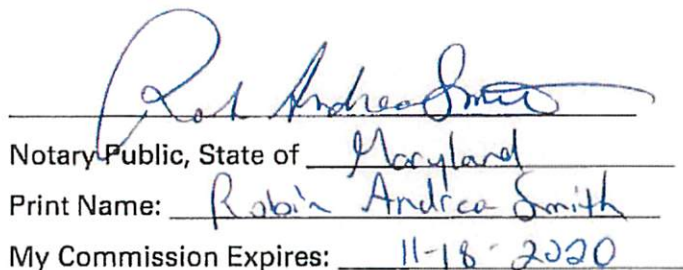 Robin Andrea Smith
Notary Public, State of Maryland
Print Name: Robin Andrea Smith
My Commission Expires: 11-18-2020